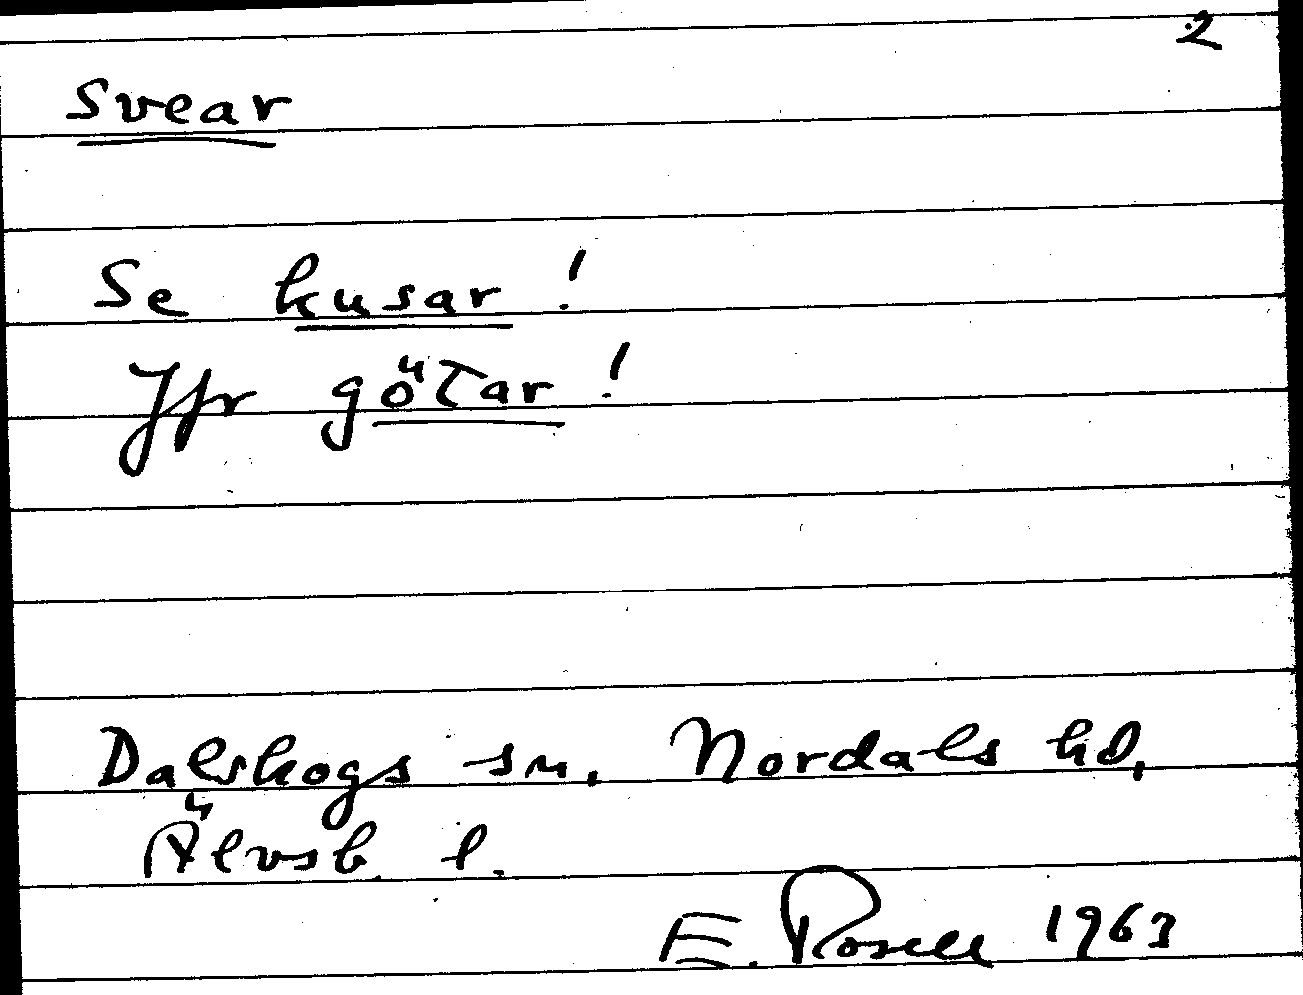 2
Svear
Se kusar!
Jfr götar!
Dalskogs sn, Nordals hd,
Älvsb. l.
E. Rosell 1963